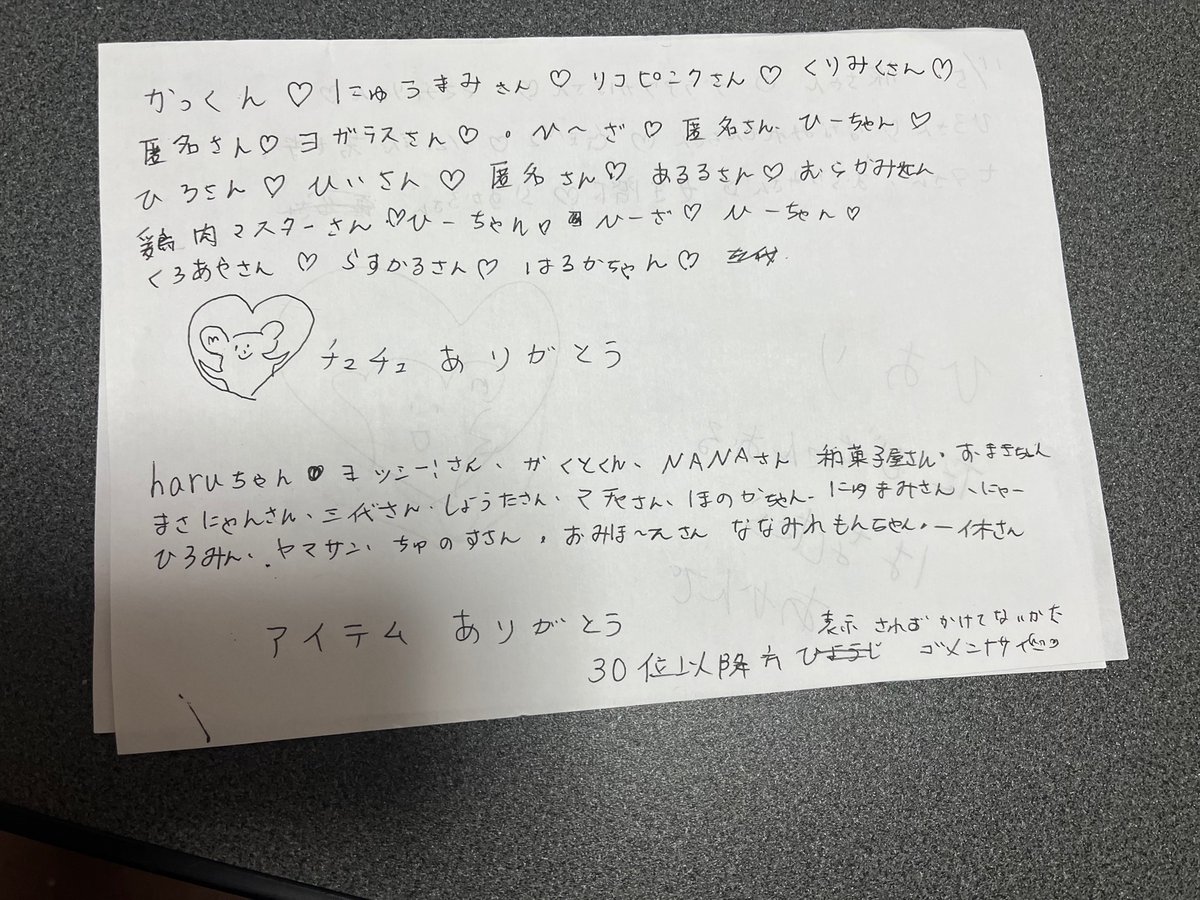 かっくん♡にゅうまみさん♡リコピンクさん♡くりみくさん♡
匿名さん♡ヨガラスさん♡。ひ〜ざ♡匿名さん、ひーちゃん♡
ひろさん♡ひいさん♡匿名さん♡あるるさん♡むらかみさん
鶏肉マスターさん♡ひーちゃん♡ひーざ♡ひーちゃん♡
くろあやさん♡らすかるさん♡はるかちゃん♡
チュチュありがとう
haruちゃん♥ヨッシー!さん、がくとくん、NANAさん 和菓子屋さん・おまきちゃん
まさにゃんさん、三代さん、しょうたさん、さん、ほのかちゃん、にゅまみさん、にゃー
ひろみん、ヤマサン、ちゅのすさん、おみほ〜えさん ななみれもんちゃん・一休さん
アイテムありがとう
表示されずかけてないかた
30位以降が ゴメンナサイ